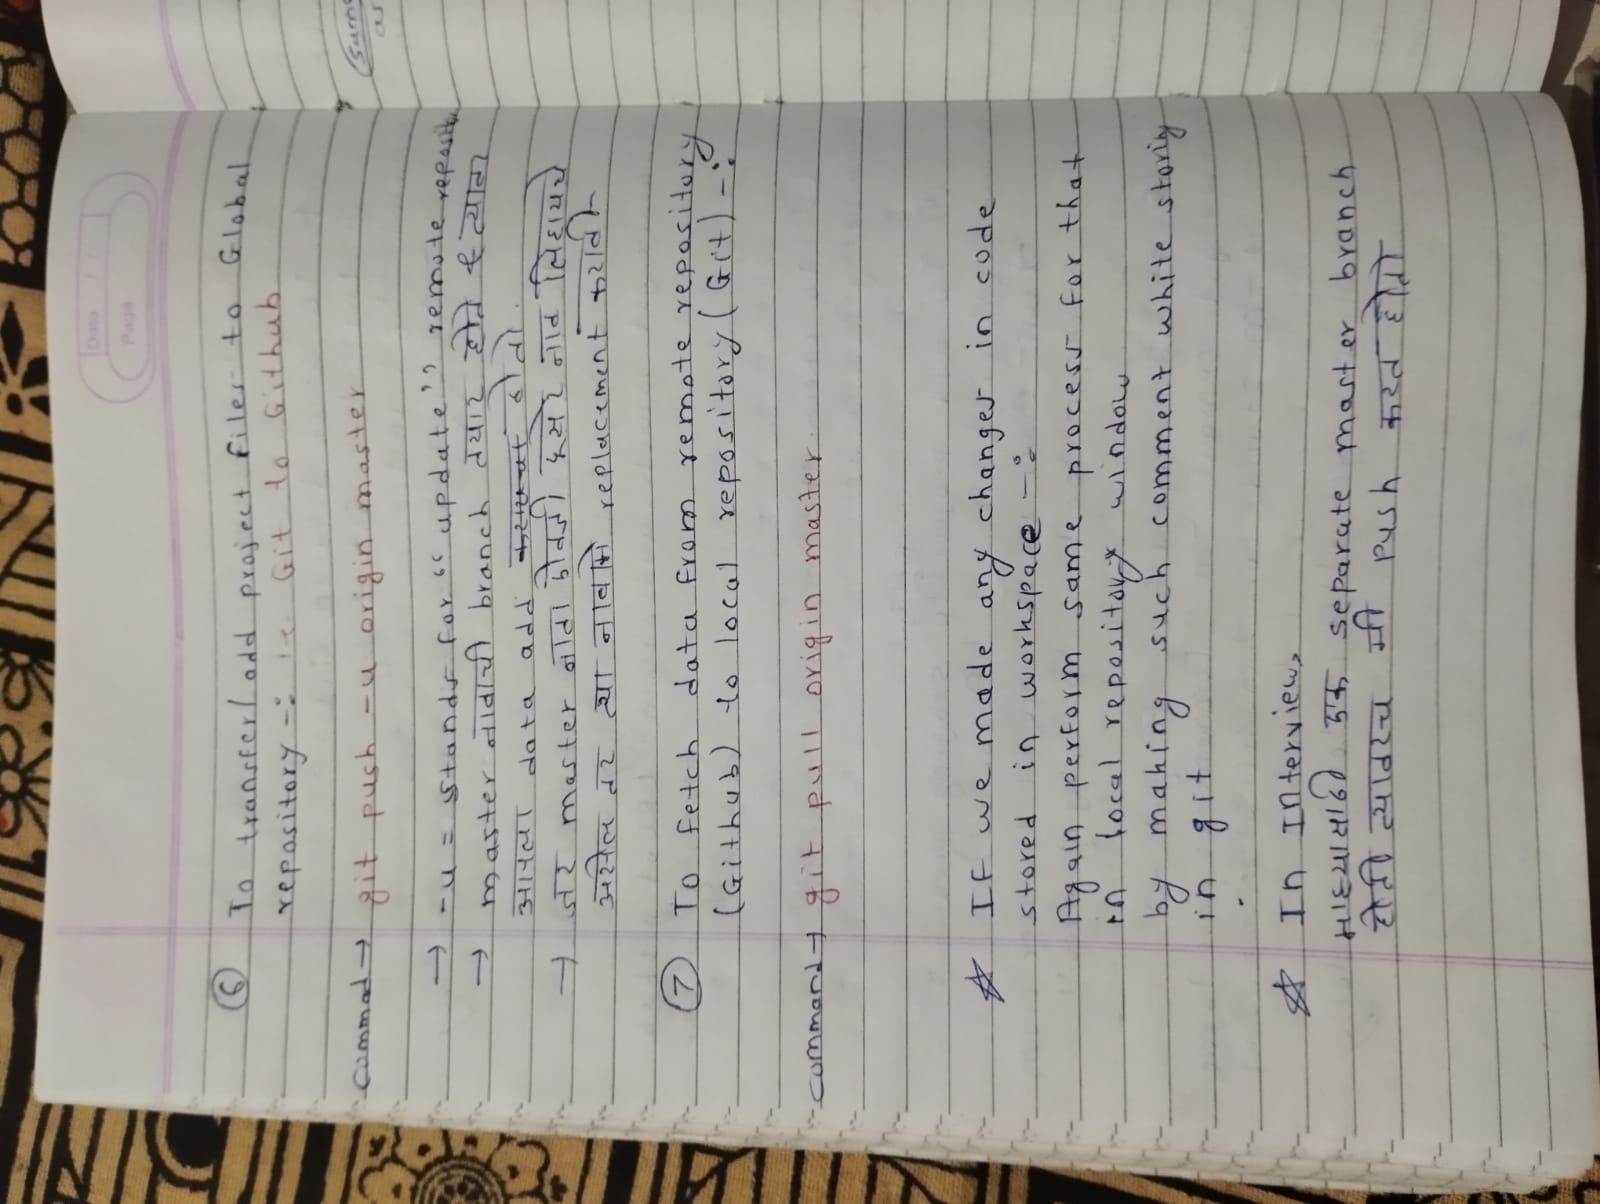 Date / /
Page
⑥ To transfer/add project files to Global
repository -: i.e. Git to Github
commad → git push -u origin master
→ -u = stands for "update" remote
→ master नावाची branch तयार होते & त्यावर
आपला data add होतो.
→ जर master नावा ऐवजी दूसरे नाव लिहायचे
असेल तर त्या नावाने replacement करावी
⑦ To fetch data from remote repository
(Github) to local repository (Git) -:
command → git pull origin master.
☆ If we made any changes in code
stored in workspace -:
Again perform same process for that
in local repository window
by making such comment white storig
in git
☆ In Interview,
माझ्यासाठी एक separate master branch
होती त्यावरच मी push करत होतो